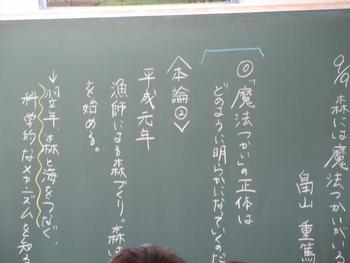 9/9 森には魔法つかいがいる
畠山 重篤
◎「魔法つかい」の正体は
どのように明らかになっていくのだ
＜本論②＞
平成元年
漁師による森づくり"森は
を始める。
→翌年、森と海をつなぐ、
科学的なメカニズムを知る